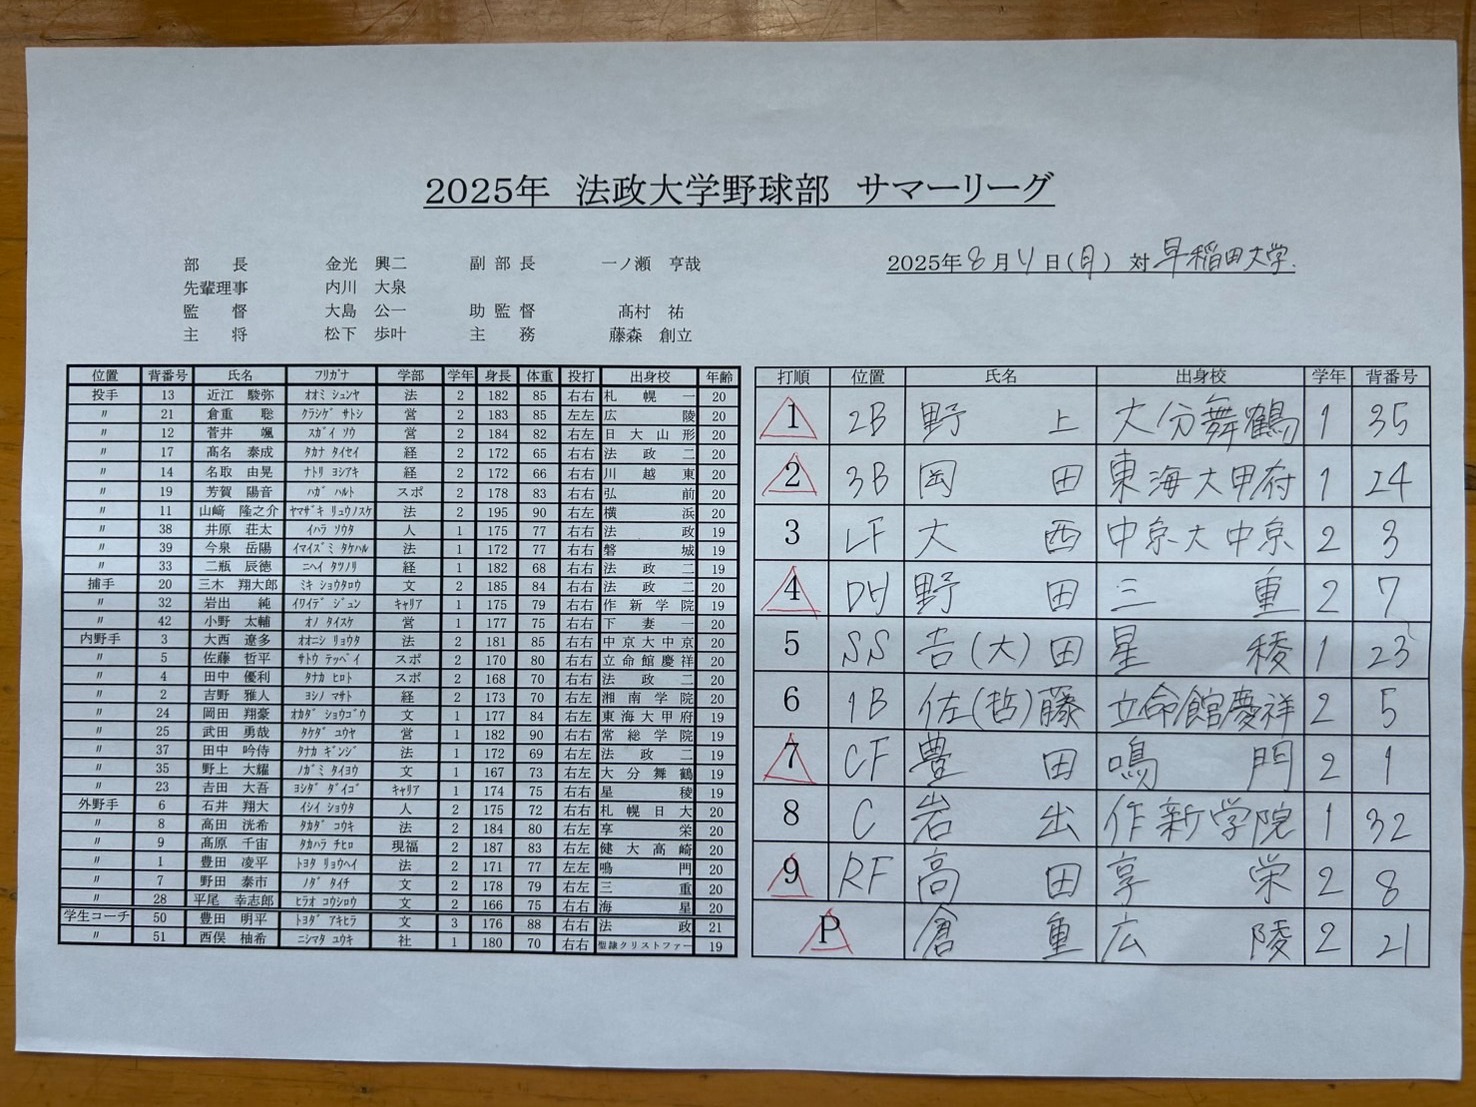 2025年　法政大学野球部　サマーリーグ
2025年8月4日(月)　対 早稲田大学.
部　長　金光　興二　副部長　一ノ瀬　亨哉
先輩理事　内川　大泉
監　督　大島　公一　助監督　髙村　祐
主　将　松下　歩叶　主　務　藤森　創立
位置 背番号 氏名 フリガナ 学部 学年 身長 体重 投打 出身校 年齢
投手 13 近江　駿弥 オオミ シュンヤ 法 2 182 85 右右 札幌一 20
〃 21 倉重　聡 クラシゲ サトシ 営 2 183 85 左左 広陵 20
〃 12 菅井　颯 スガイ ソウ 営 2 184 82 右左 日大山形 20
〃 17 髙名　泰成 タカナ タイセイ 経 2 172 65 右右 法政二 20
〃 14 名取　由晃 ナトリ ヨシアキ 経 2 172 66 右右 川越東 20
〃 19 芳賀　陽音 ハガ ハルト スポ 2 178 83 右右 弘前 20
〃 11 山﨑　隆之介 ヤマザキ リュウノスケ 法 2 195 90 右左 横浜 20
〃 38 井原　荘太 イハラ ソウタ 人 1 175 77 右右 法政 19
〃 39 今泉　岳陽 イマイズミ タケハル 法 1 172 77 右右 磐城 19
〃 33 二瓶　辰徳 ニヘイ タツノリ 経 1 182 68 右右 法政二 19
捕手 20 三木　翔大郎 ミキ ショウタロウ 文 2 185 84 右右 法政二 20
〃 32 岩出　純 イワイデ ジュン キャリア 1 175 79 右右 作新学院 19
〃 42 小野　太輔 オノ タイスケ 営 1 177 75 右右 下妻一 20
内野手 3 大西　遼多 オオニシ リョウタ 法 2 181 85 右右 中京大中京 20
〃 5 佐藤　哲平 サトウ テッペイ スポ 2 170 80 右右 立命館慶祥 20
〃 4 田中　優利 タナカ ヒロト スポ 2 168 70 右右 法政二 20
〃 2 吉野　雅人 ヨシノ マサト 経 2 173 70 右左 湘南学院 20
〃 24 岡田　翔豪 オカダ ショウゴウ 文 1 177 84 右左 東海大甲府 19
〃 25 武田　勇哉 タケダ ユウヤ 営 1 182 90 右右 常総学院 19
〃 37 田中　吟侍 タナカ ギンジ 法 1 172 69 右左 法政二 19
〃 35 野上　大耀 ノガミ タイヨウ 文 1 167 73 右左 大分舞鶴 19
〃 23 吉田　大吾 ヨシダ ダイゴ キャリア 1 174 75 右右 星稜 19
外野手 6 石井　翔大 イシイ ショウタ 人 2 175 72 右右 札幌日大 20
〃 8 高田　洸希 タカダ コウキ 法 2 184 80 右左 享栄 20
〃 9 髙原　千宙 タカハラ チヒロ 現福 2 187 83 右左 健大高崎 20
〃 1 豊田　凌平 トヨタ リョウヘイ 法 2 171 77 左左 鳴門 20
〃 7 野田　泰市 ノダ タイチ 文 2 178 79 右左 三重 20
〃 28 平尾　幸志郎 ヒラオ コウシロウ 文 2 166 75 右右 海星 20
学生コーチ 50 豊田　明平 トヨダ アキヒラ 文 3 176 88 右右 法政 21
〃 51 西俣　柚希 ニシマタ ユウキ 社 1 180 70 右右 聖隷クリストファー 19
打順 位置 氏名 出身校 学年 背番号
1 2B 野上 大分舞鶴 1 35
2 3B 岡田 東海大甲府 1 24
3 LF 大西 中京大中京 2 3
4 DH 野田 三重 2 7
5 SS 吉(大)田 星稜 1 23
6 1B 佐(哲)藤 立命館慶祥 2 5
7 CF 豊田 鳴門 2 1
8 C 岩出 作新学院 1 32
9 RF 高田 享栄 2 8
P 倉重 広陵 2 21